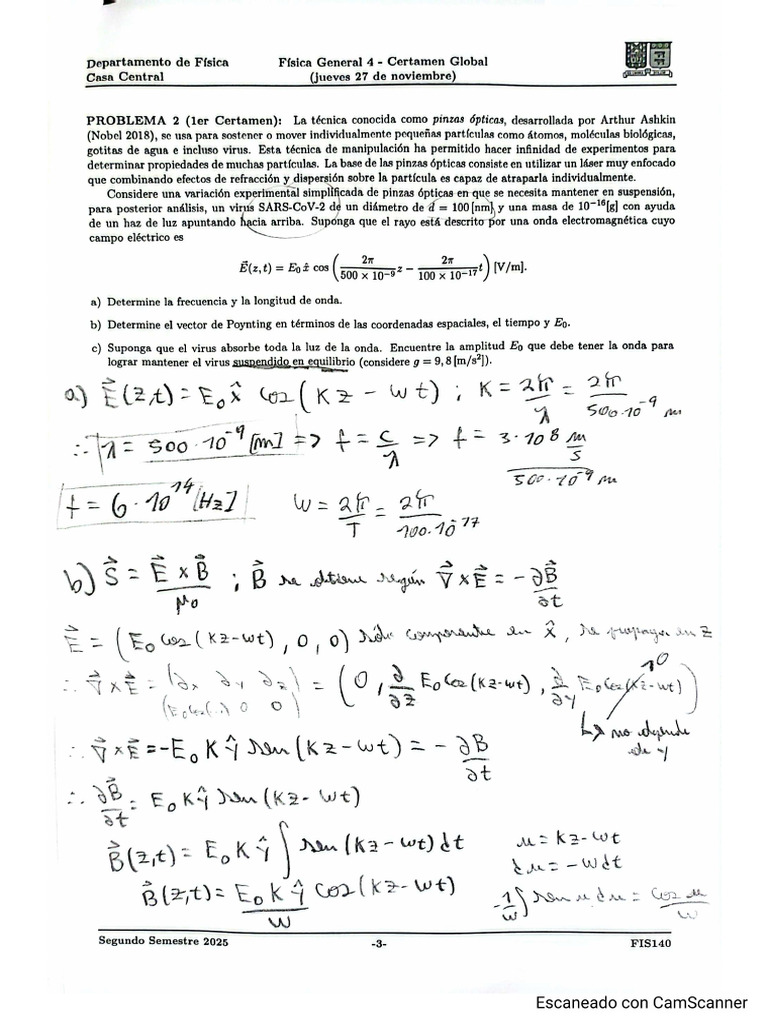 Departamento de Física
Casa Central
Física General 4 - Certamen Global
(jueves 27 de noviembre)
PROBLEMA 2 (1er Certamen): La técnica conocida como pinzas ópticas, desarrollada por Arthur Ashkin
(Nobel 2018), se usa para sostener o mover individualmente pequeñas partículas como átomos, moléculas biológicas,
gotitas de agua e incluso virus. Esta técnica de manipulación ha permitido hacer infinidad de experimentos para
determinar propiedades de muchas partículas. La base de las pinzas ópticas consiste en utilizar un láser muy enfocado
que combinando efectos de refracción y dispersión sobre la partícula es capaz de atraparla individualmente.
Considere una variación experimental simplificada de pinzas ópticas en que se necesita mantener en suspensión,
para posterior análisis, un virus SARS-CoV-2 de un diámetro de d = 100 [nm] y una masa de 10⁻¹⁶[g] con ayuda
de un haz de luz apuntando hacia arriba. Suponga que el rayo está descrito por una onda electromagnética cuyo
campo eléctrico es
E⃗(z, t) = E₀ x̂ cos (2π/(500 × 10⁻⁹) z − 2π/(100 × 10⁻¹⁷) t) [V/m].
a) Determine la frecuencia y la longitud de onda.
b) Determine el vector de Poynting en términos de las coordenadas espaciales, el tiempo y E₀.
c) Suponga que el virus absorbe toda la luz de la onda. Encuentre la amplitud E₀ que debe tener la onda para
lograr mantener el virus suspendido en equilibrio (considere g = 9,8 [m/s²]).
a) E⃗(z,t) = E₀ x̂ cos(Kz − wt) ; K = 2π/λ = 2π/(500·10⁻⁹ m)
∴ λ = 500·10⁻⁹ [m] => f = c/λ => f = (3·10⁸ m/s)/(500·10⁻⁹ m)
f = 6·10¹⁴ [Hz] W = 2π/T = 2π/(100·10⁻¹⁷)
b) S⃗ = (E⃗ × B⃗)/μ₀ ; B⃗ se obtiene según ∇⃗ × E⃗ = −∂B⃗/∂t
E⃗ = (E₀ cos(kz−wt), 0, 0) sólo componente en x̂, se propaga en z
∴ ∇⃗ × E⃗ = (∂x ∂y ∂z) (E₀cos( ) 0 0) = (0, ∂/∂z E₀ cos(kz−wt), ∂/∂y E₀ cos(kz−wt)) 0
↳ no depende
de y
∴ ∇⃗ × E⃗ = −E₀ K ŷ sen(kz − wt) = −∂B/∂t
∴ ∂B⃗/∂t = E₀ K ŷ sen(kz − wt)
B⃗(z,t) = E₀ K ŷ ∫ sen(kz − wt) dt u = kz − wt
du = −wdt
B⃗(z,t) = (E₀ K ŷ)/w cos(kz − wt) −1/w ∫ sen u du = cos u/w
Segundo Semestre 2025
-3-
FIS140
Escaneado con CamScanner